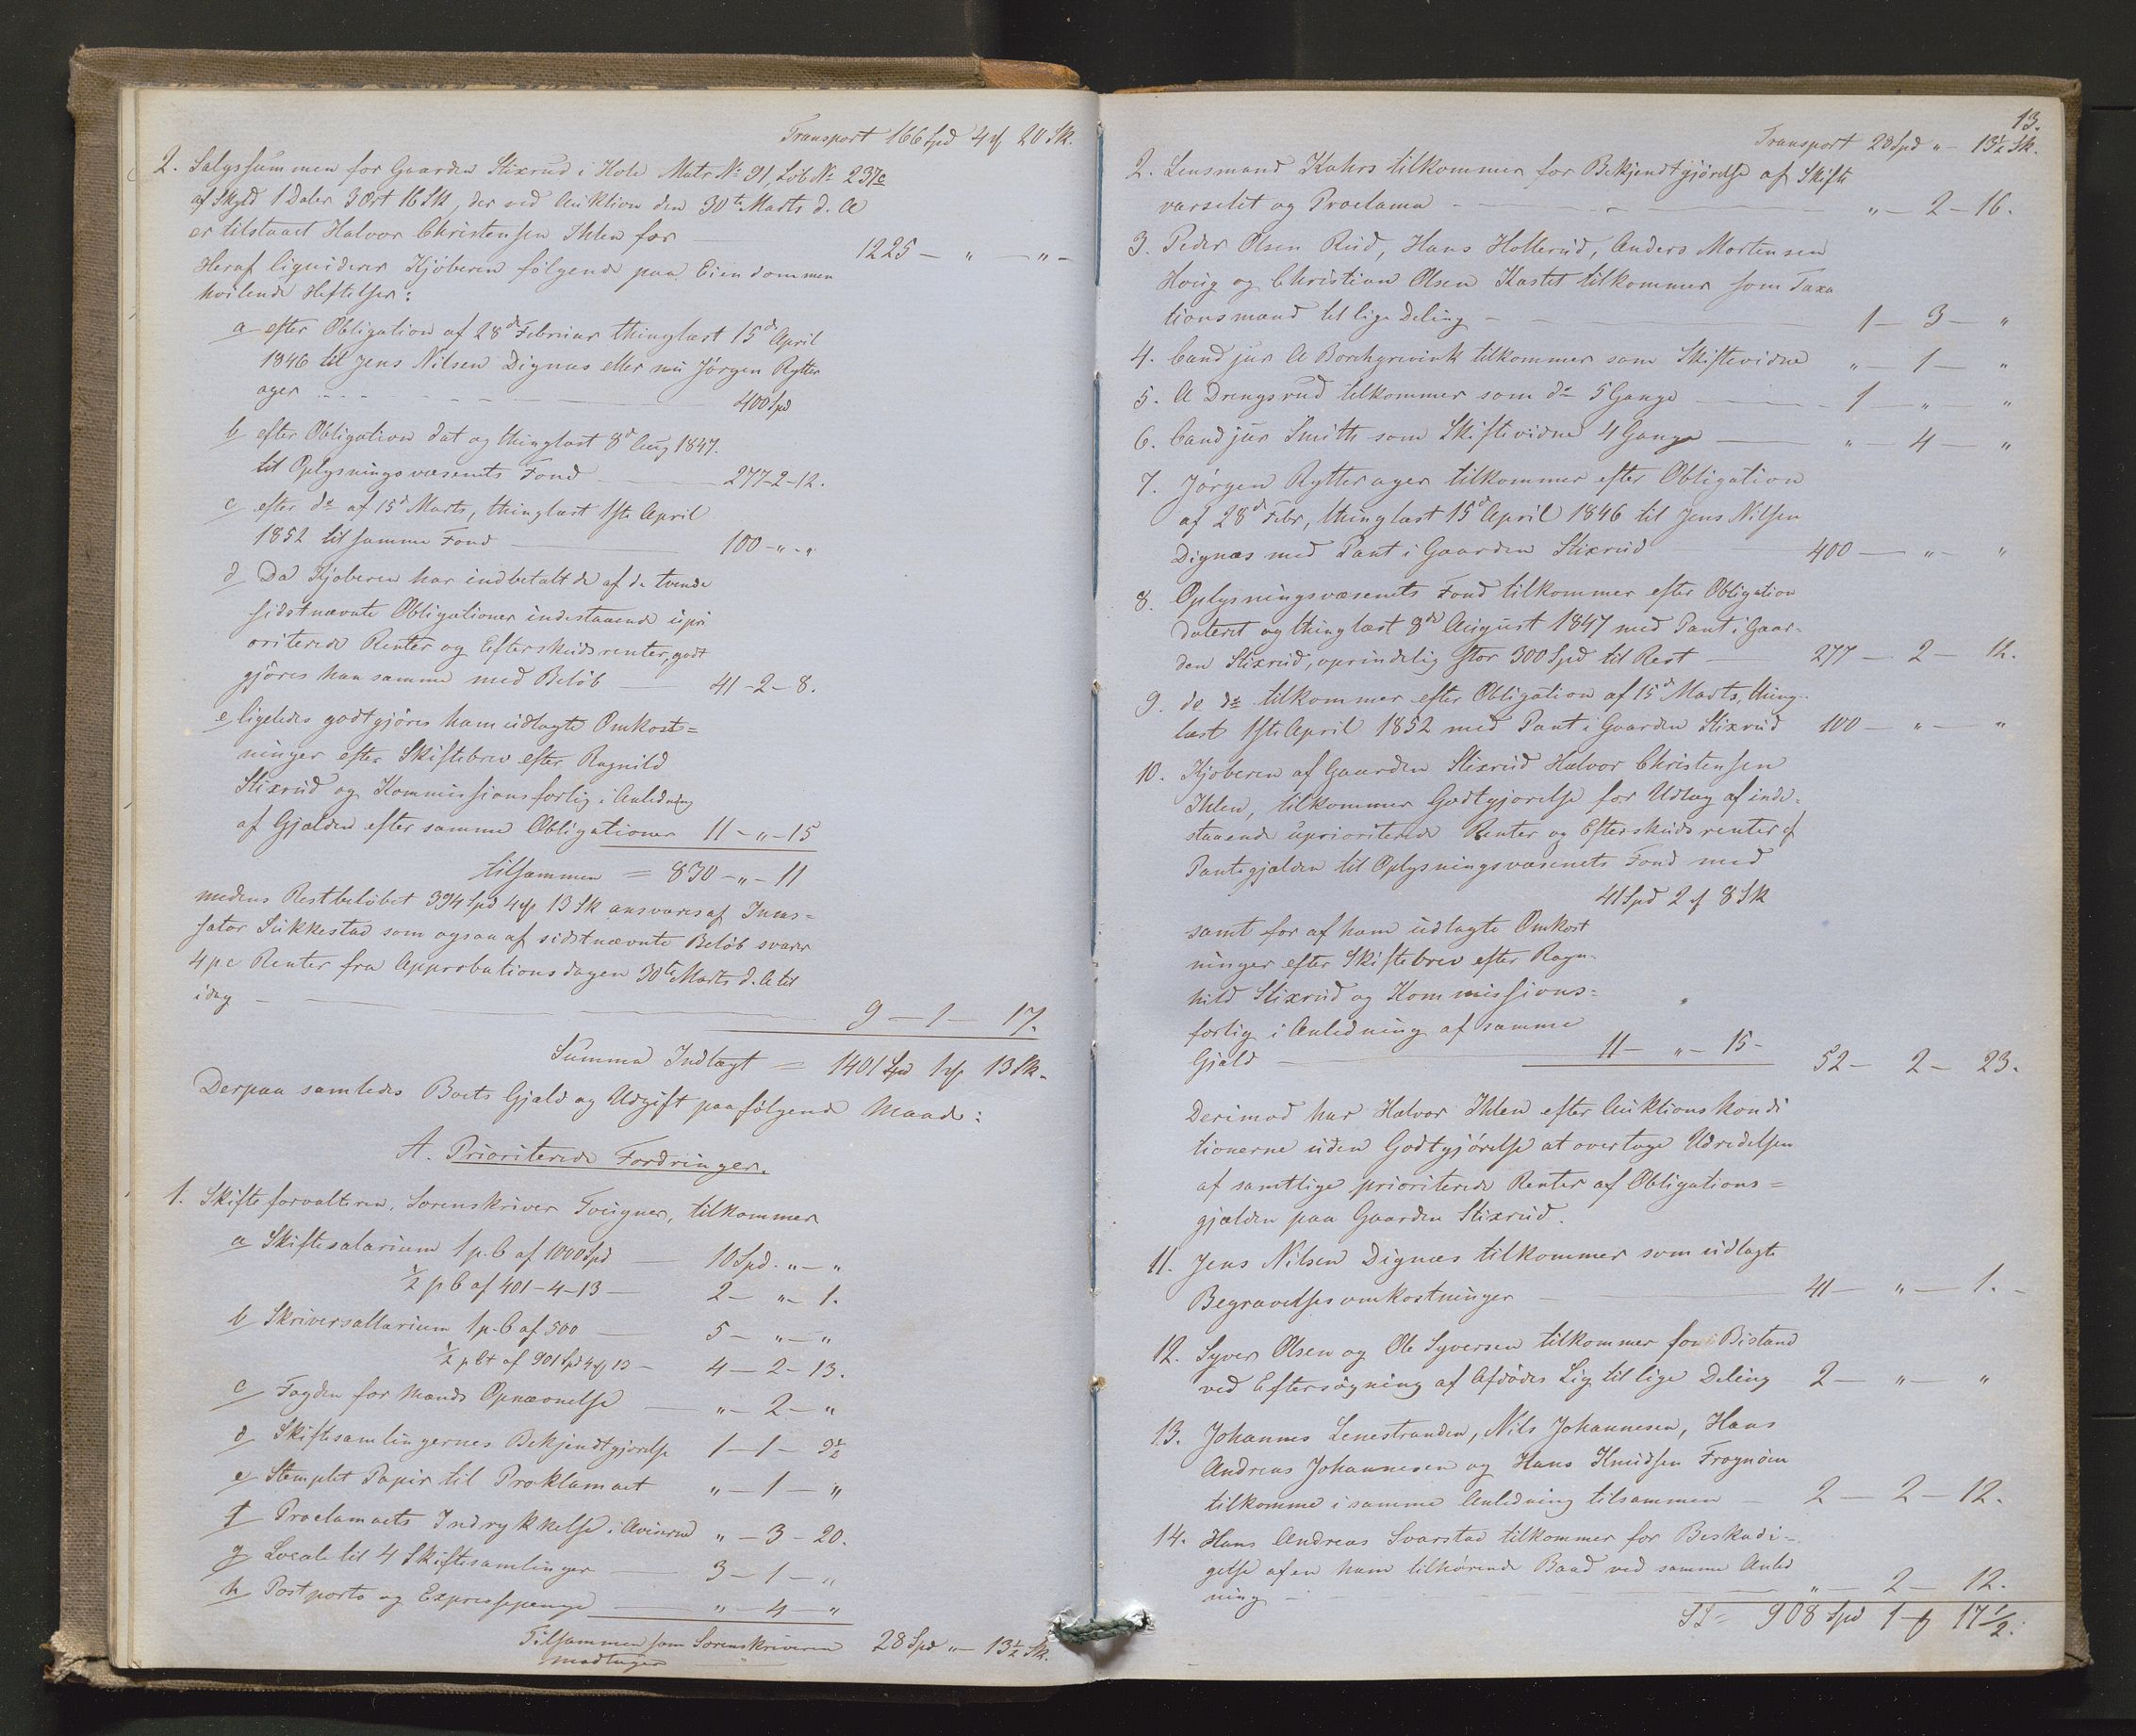 Transport 166 Spd 4 ꝑ 20 Sk.
2. Salgssummen for Gaarden Stixrud i Hole Matr No 91, Løb No 237c
af Skyld 1 Daler 3 Ort 16 Sk, der ved Auktion den 30te Marts d. A
er tilslaaet Halvor Christensen Ihlen for 1225 - " - " -
Heraf liquiderer Kjøberen følgende paa Eiendommen
hvilende Heftelser:
a efter Obligation af 28de Februar thinglæst 15de April
1846 til Jens Nilsen Dignæs eller nu Jørgen Rytter
ager - - - - 400 Spd
b efter Obligation dat og thinglæst 8de Aug 1847.
til Oplysningsvæsenets Fond - 277-2-12.
c efter do af 15de Marts, thinglæst 1ste April
1852 til samme Fond - 100-"-"
d Da Kjøberen har indbetalt de af de tvende
sidstnævnte Obligationer indestaaende upri
oriterede Renter og Efterskudsrenter, godt
gjøres han samme med Beløb - 41-2-8.
e ligeledes godtgjøres ham udlagte Omkost=
ninger efter Skiftebrev efter Ragnild
Stixrud og Kommissionsforlig i Anledning
af Gjælden efter samme Obligationer 11-"-15
tilsammen = 830-"-11
medens Restbeløbet 394 Spd 4 ꝑ 13 Sk ansvares af Incas=
sator Sukkestad som ogsaa af sidstnævnte Beløb svarer
4 pc Renter fra Approbationsdagen 30te Marts d. A til
idag - 9-1-17.
Summa Indtægt = 1401 Spd 1 ꝑ 13 Sk.
Derpaa samledes Boets Gjæld og Udgift paa følgende Maade:
A. Prioriterede Fordringer.
1. Skifteforvalteren, Sorenskriver Tvigner, tilkommer
a Skiftesalarium 1 p. C af 1000 Spd - 10 Spd. "-"
½ p C af 401-4-13 - 2-"-1.
b Skriversallarium 1 p. C af 500 - 5-"-"
½ p Ct af 901 Spd 4 ꝑ 13 - 4-2-13.
c Fogden for Mænds Opnævnelse - "-2-"
d Skiftesamlingernes Bekjendtgjørelse 1-1-9½
e Stemplet Papir til Proklamaet "-1-"
f Proclamaets Indrykkelse i Aviserne "-3-20.
g Locale til 4 Skiftesamlinger - 3-1-"
h Postporto og Expressepenge - "-4-"
Tilsammen som Sorenskriveren 28 Spd "- 13½ Sk.
modtager
13.
Transport 28 Spd "- 13½ Sk.
2. Lensmand Kahrs tilkommer for Bekjendtgjørelse af Skifte
varselet og Proclama - "-2-16.
3. Peder Olsen Rud, Hans Hollerud, Anders Mortensen
Houg og Christian Olsen Kastet tilkommer som Taxa
tionsmænd til lige Deling - 1-3-"
4. Cand jur A Borchgrevink tilkommer som Skiftevidne "-1-"
5. A Drengsrud tilkommer som do 5 Gange - 1-"-"
6. Cand jur Smith som Skiftevidne 4 Gange - "-4-"
7. Jørgen Rytterager tilkommer efter Obligation
af 28de Febr, thinglæst 15de April 1846 til Jens Nilsen
Dignæs med Pant i Gaarden Stixrud 400-"-"
8. Oplysningsvæsenets Fond tilkommer efter Obligation
dateret og thinglæst 8de August 1847 med Pant i Gaar-
den Stixrud, oprindelig stor 300 Spd til Rest - 277-2-12.
9. do do tilkommer efter Obligation af 15de Marts, thing-
læst 1ste April 1852 med Pant i Gaarden Stixrud 100-"-"
10. Kjøberen af Gaarden Stixrud Halvor Christensen
Ihlen, tilkommer Godtgjørelse for Udlæg af inde=
staaende uprioriterede Renter og Efterskudsrenter af
Pantegjælden til Oplysningsvæsenets Fond med
41 Spd 2 ꝑ 8 Sk
samt for af ham udlagte Omkost
ninger efter Skiftebrev efter Ragn-
hild Stixrud og Kommissions=
forlig i Anledning af samme
Gjæld - 11-"-15- 52-2-23.
Derimod har Halvor Ihlen efter Auktionskondi
tionerne uden Godtgjørelse at overtage Udredelsen
af samtlige prioriterede Renter af Obligations=
gjælden paa Gaarden Stixrud.
11. Jens Nilsen Dignæs tilkommer som udlagte
Begravelsesomkostninger - 41-"-1.-
12. Syver Olsen og Ole Syversen tilkommer for Bistand
ved Eftersøgning af Afdødes Lig til lige Deling 2-"-"
13. Johannes Lenestranden, Nils Johannesen, Hans
Andreas Johannesen og Hans Knudsen Frognøen
tilkomme i samme Anledning tilsammen - 2-2-12.
14. Hans Andreas Svarstad tilkommer for Beskadi-
gelse af en ham tilhørende Baad ved samme Anled
ning - "-2-12.
= 908 Spd 1 ꝑ 17½.